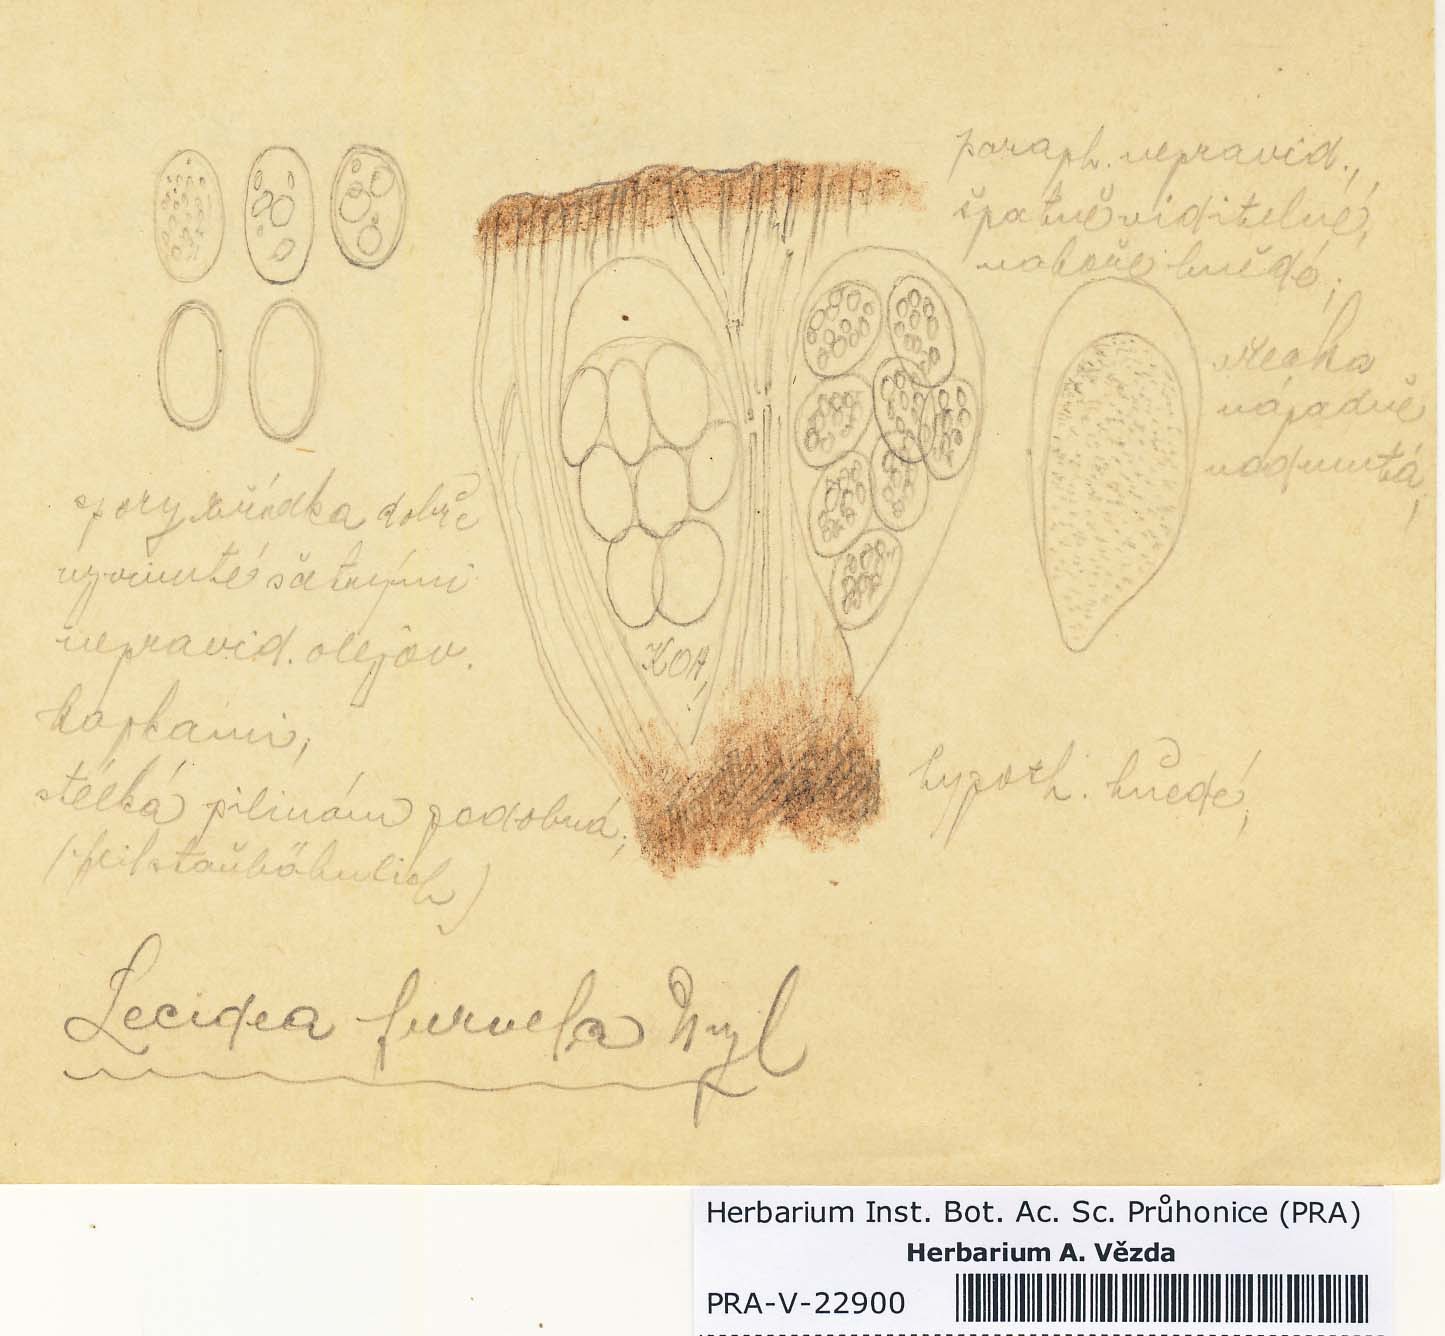 paraph. nepravid.,
špatně viditelné,
nahoře hnědé;
vřecka
nápadně
nadmutá,
spory zřídka dobře
vyvinuté s četnými
nepravid. olejov.
kapkami,
KOH,
hypoth. hnědé,
stélka pilinám podobná,
(feilstaubähnlich)
Lecidea furvela Nyl
Herbarium Inst. Bot. Ac. Sc. Průhonice (PRA)
Herbarium A. Vězda
PRA-V-22900